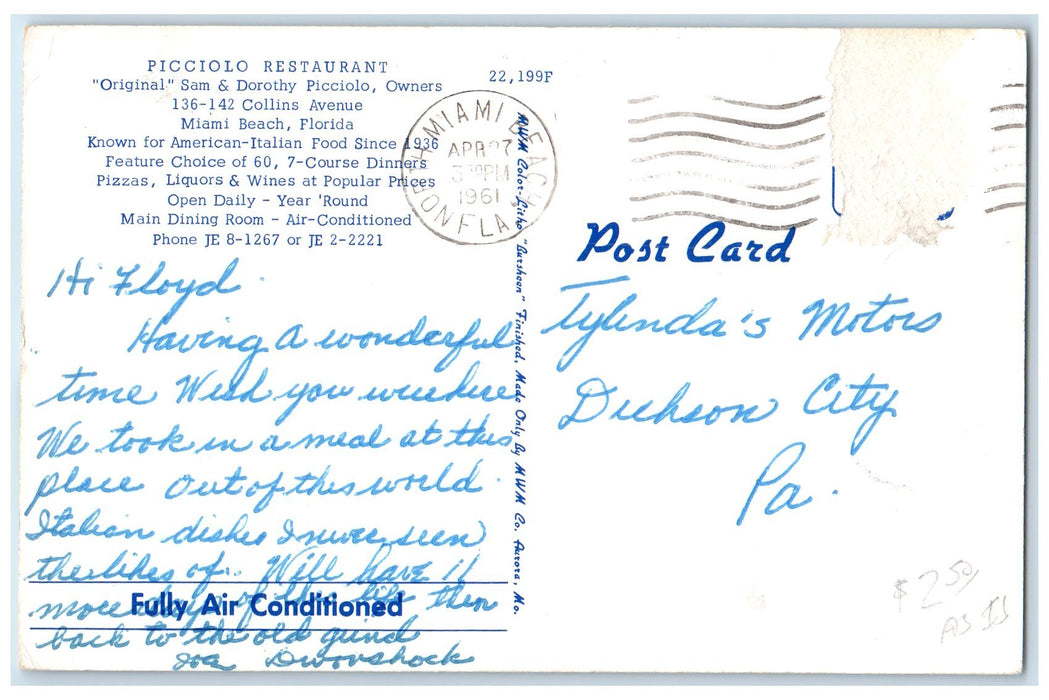 PICCIOLO RESTAURANT
"Original" Sam & Dorothy Picciolo, Owners
136-142 Collins Avenue
Miami Beach, Florida
Known for American-Italian Food Since 1936
Feature Choice of 60, 7-Course Dinners
Pizzas, Liquors & Wines at Popular Prices
Open Daily - Year 'Round
Main Dining Room - Air-Conditioned
Phone JE 8-1267 or JE 2-2221
22,199F
MIAMI BEACH
APR 27
PM
1961
FLA
MWM Color-Litho "Bursheen" Finished, Made Only By MWM Co. Aurora, Mo.
Post Card
Hi Floyd
Having A wonderful
time Wish you were here
We took in a meal at this
place Out of this world.
Italian dishes I never seen
the likes of. Will have 11
more days of this life then
back to the old grind
Joe Dworshock
Fully Air Conditioned
Tylenda's Motors
Dickson City
Pa.
$2.50
AS IS